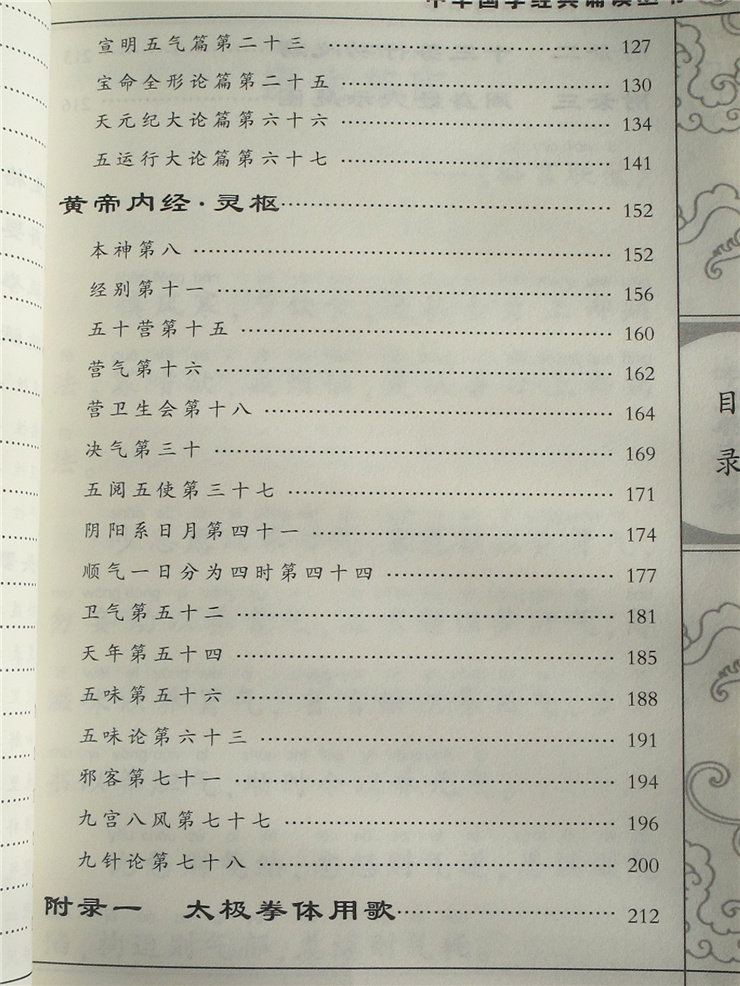 中华国学经典诵读丛书
宣明五气篇第二十三 127
宝命全形论篇第二十五 130
天元纪大论篇第六十六 134
五运行大论篇第六十七 141
黄帝内经·灵枢 152
本神第八 152
经别第十一 156
五十营第十五 160
营气第十六 162
营卫生会第十八 164
决气第三十 169
五阅五使第三十七 171
阴阳系日月第四十一 174
顺气一日分为四时第四十四 177
卫气第五十二 181
天年第五十四 185
五味第五十六 188
五味论第六十三 191
邪客第七十一 194
九宫八风第七十七 196
九针论第七十八 200
附录一 太极拳体用歌 212
目录